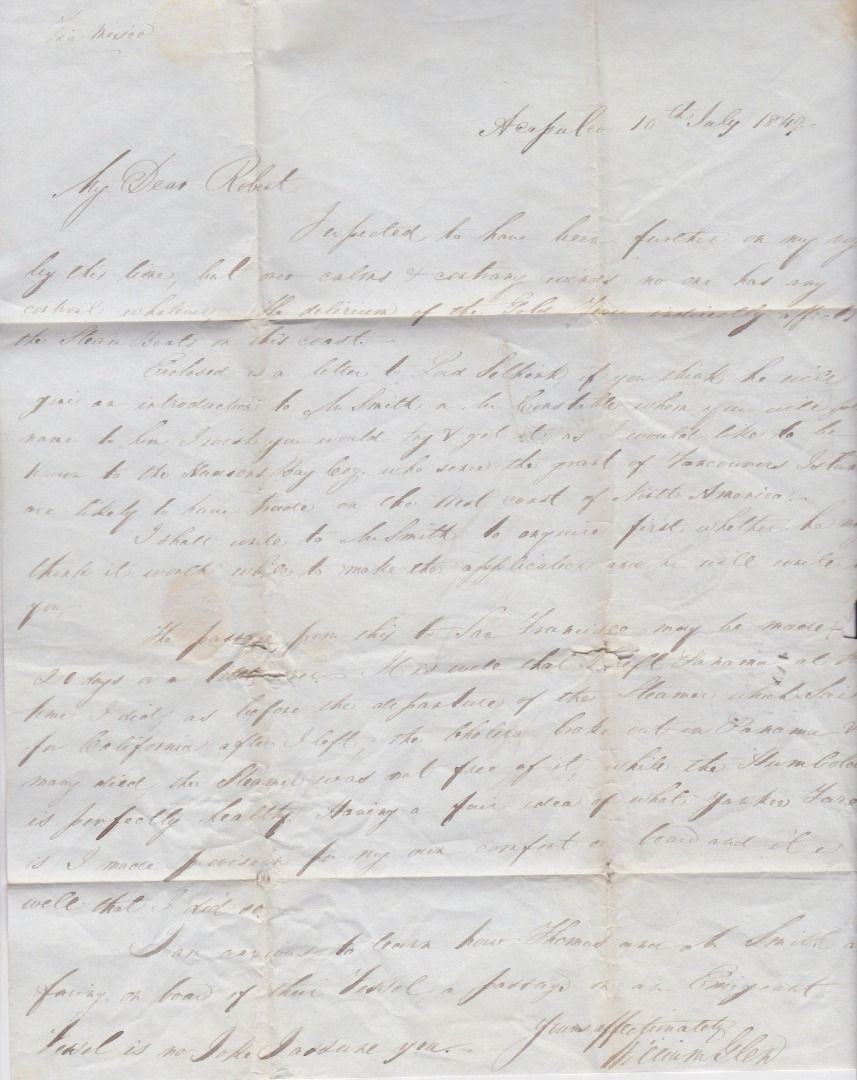 Via Mexico
Acapulco 10th July 1849.
My Dear Robert
I expected to have been further on my
by this time, but over calms & contrary winds no one has any
control whatever. The delirium of the Gold Fever indirectly affects
the Steam Boats on this coast.
Enclosed is a letter to Lord Selkirk, if you think he will
give an introduction to Mr Smith or Mr Constable whom you will
name to him, I wish you would try & get it, as I would like to be
known to the Hudsons Bay Coy. who the grant of Vancouvers
are likely to have trade on the West coast of North America.
I shall write to Mr Smith to enquire first whether he
think it worth while to make the application and he will write
you.
The passage from this to San Francisco may be made
21 days or a little over. It is well that I left Panama at
time I did, as before the departure of the Steamer which
for California after I left, the Cholera broke out in Panama &
many died, the Steamer was not free of it, while the
is perfectly healthy. Having a fair idea of what Yankee
is I made provision for my own comfort on board and it is
well that I did so.
I am anxious to learn how Thomas and Mr Smith
faring on board of their Vessel, a passage on an Emigrant
Vessel is no Joke I assure you.
Yours affectionately
William Glen